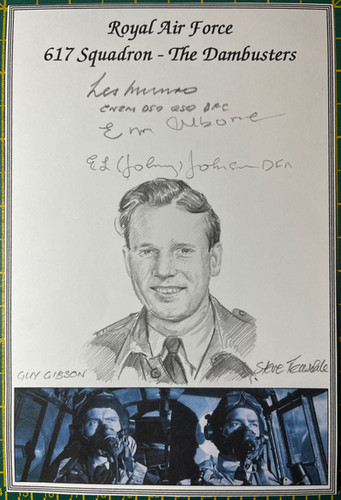 Royal Air Force
617 Squadron - The Dambusters
Les Munro
CNZM DSO QSO DFC
E L (Johny) Johnson DFM
GUY GIBSON
Steve Teasdale